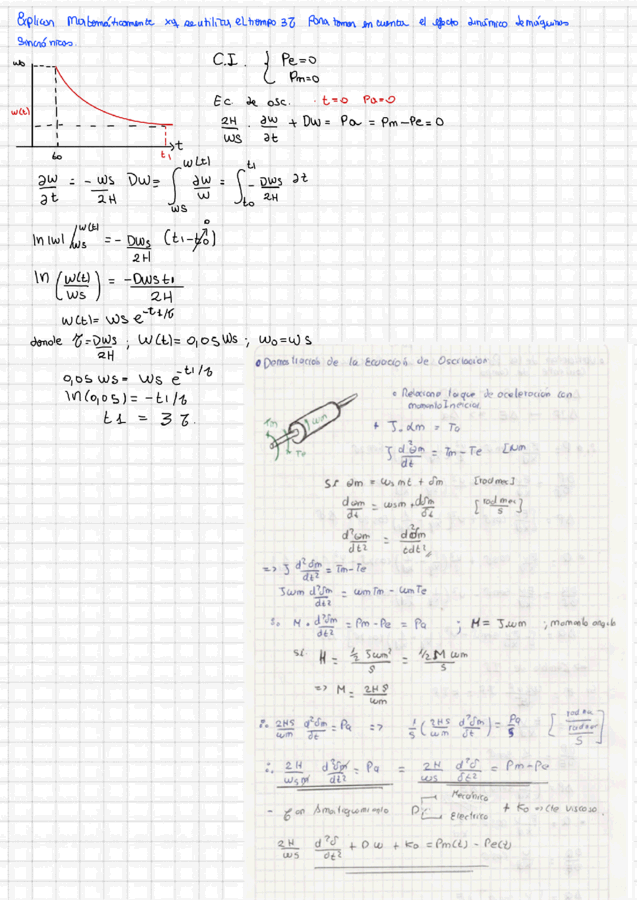 Explican Matemáticamente xq se utiliza el tiempo 3τ Para tomar en cuenta el efecto dinámico de máquinas
Sincrónicas.
C.I. { Pe=0
Pm=0
Wo
w(t)
to
t1
t
Ec. de osc. · t=0 Pa=0
2H/ws · ∂w/∂t + Dw = Pa = Pm-Pe=0
∂w/∂t = -ws/2H Dw = ∫ws^w(t) ∂w/w = ∫to^t1 -Dws/2H ∂t
ln|w| /ws^w(t) = -Dws/2H (t1-to) 0
ln (w(t)/ws) = -Dws t1/2H
w(t)= ws e^-t1/τ
donde τ=Dws/2H ; w(t)= 0,05 ws ; wo=ws
0,05 ws = ws e^-t1/τ
ln(0,05) = -t1/τ
t1 = 3τ.
• Demostración de la Ecuación de Oscilación
Tm
wm
Te
• Relacione torque de aceleración con
momento Inercial
+ J.αm = Ta
J d²θm/dt = Tm - Te [N.m
si θm = wsmt + δm [rad mec]
dθm/dt = wsm + dδm/dt [rad mec/s]
d²θm/dt² = d²δm/dt²
=> J d²δm/dt² = Tm-Te
Jwm d²δm/dt² = wmTm - wmTe
M · d²δm/dt² = Pm - Pe = Pa ; M = J.wm ; momento angula
si H = ½ Jwm²/S = ½ M wm/S
=> M = 2HS/wm
∴ 2HS/wm d²δm/dt = Pa => 1/S (2HS/wm d²δm/dt) = Pa/S
∴ 2H/wsm d²δm/dt² = Pa = 2H/ws d²δ/dt² = Pm-Pe
- τ en Amortiguamiento D Mecánico Electrico + Ko = cte viscoso.
2H/ws d²δ/dt² + Dw + Ko = Pm(t) - Pe(t)